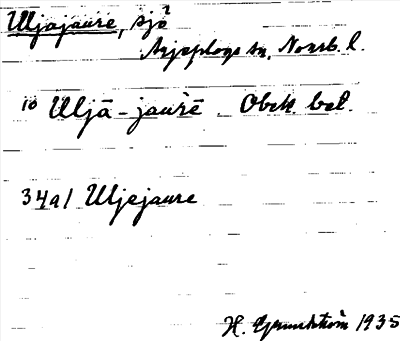 Uljajaure, sjö
Arjeplogs sn, Norrb. l.
10 Uljā-jaurē. Obek. bet.
34a1 Uljejaure
H. Grundström 1935